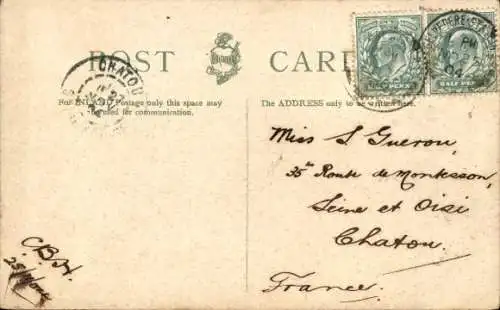 POST CARD
For INLAND Postage only this space may
be used for communication.
The ADDRESS only to be written here.
CHATOU
BELVEDERE
PM
04
HALF PENNY
HALF PENNY
Miss S. Gueron
35 Route de Montesson
Seine et Oise
Chatou
France.
C.B.H.